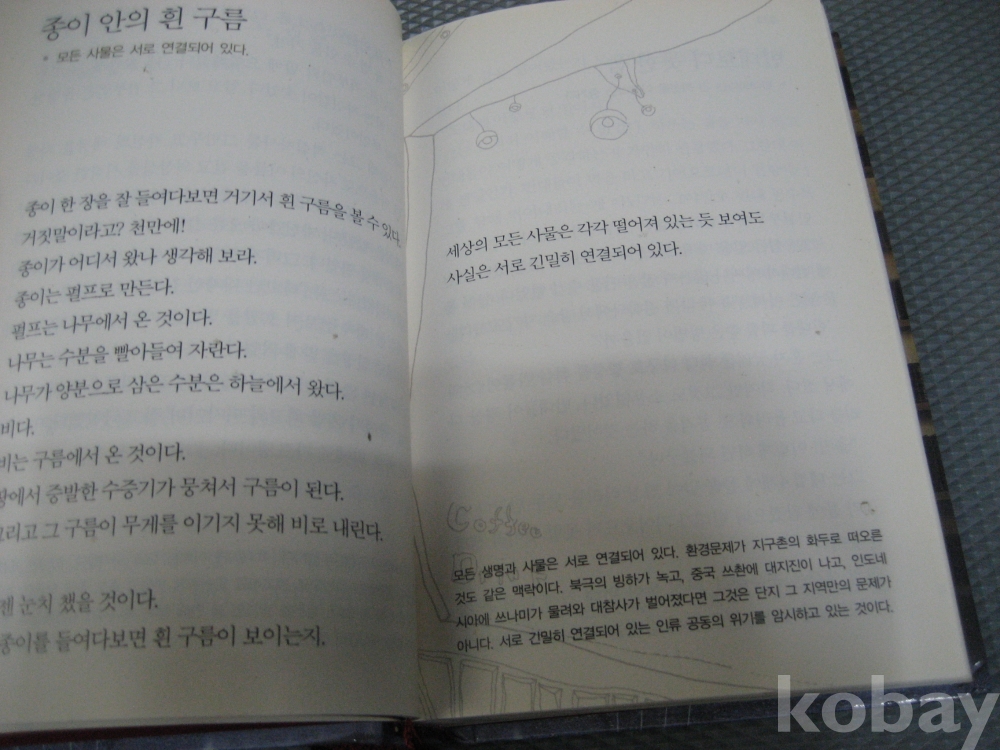 종이 안의 흰 구름
* 모든 사물은 서로 연결되어 있다.
종이 한 장을 잘 들여다보면 거기서 흰 구름을 볼 수 있다.
거짓말이라고? 천만에!
종이가 어디서 왔나 생각해 보라.
종이는 펄프로 만든다.
펄프는 나무에서 온 것이다.
나무는 수분을 빨아들여 자란다.
나무가 양분으로 삼은 수분은 하늘에서 왔다.
비다.
비는 구름에서 온 것이다.
에서 증발한 수증기가 뭉쳐서 구름이 된다.
그리고 그 구름이 무게를 이기지 못해 비로 내린다.
젠 눈치 챘을 것이다.
종이를 들여다보면 흰 구름이 보이는지.
세상의 모든 사물은 각각 떨어져 있는 듯 보여도
사실은 서로 긴밀히 연결되어 있다.
Coffee
모든 생명과 사물은 서로 연결되어 있다. 환경문제가 지구촌의 화두로 떠오른
것도 같은 맥락이다. 북극의 빙하가 녹고, 중국 쓰촨에 대지진이 나고, 인도네
시아에 쓰나미가 몰려와 대참사가 벌어졌다면 그것은 단지 그 지역만의 문제가
아니다. 서로 긴밀히 연결되어 있는 인류 공동의 위기를 암시하고 있는 것이다.
kobay